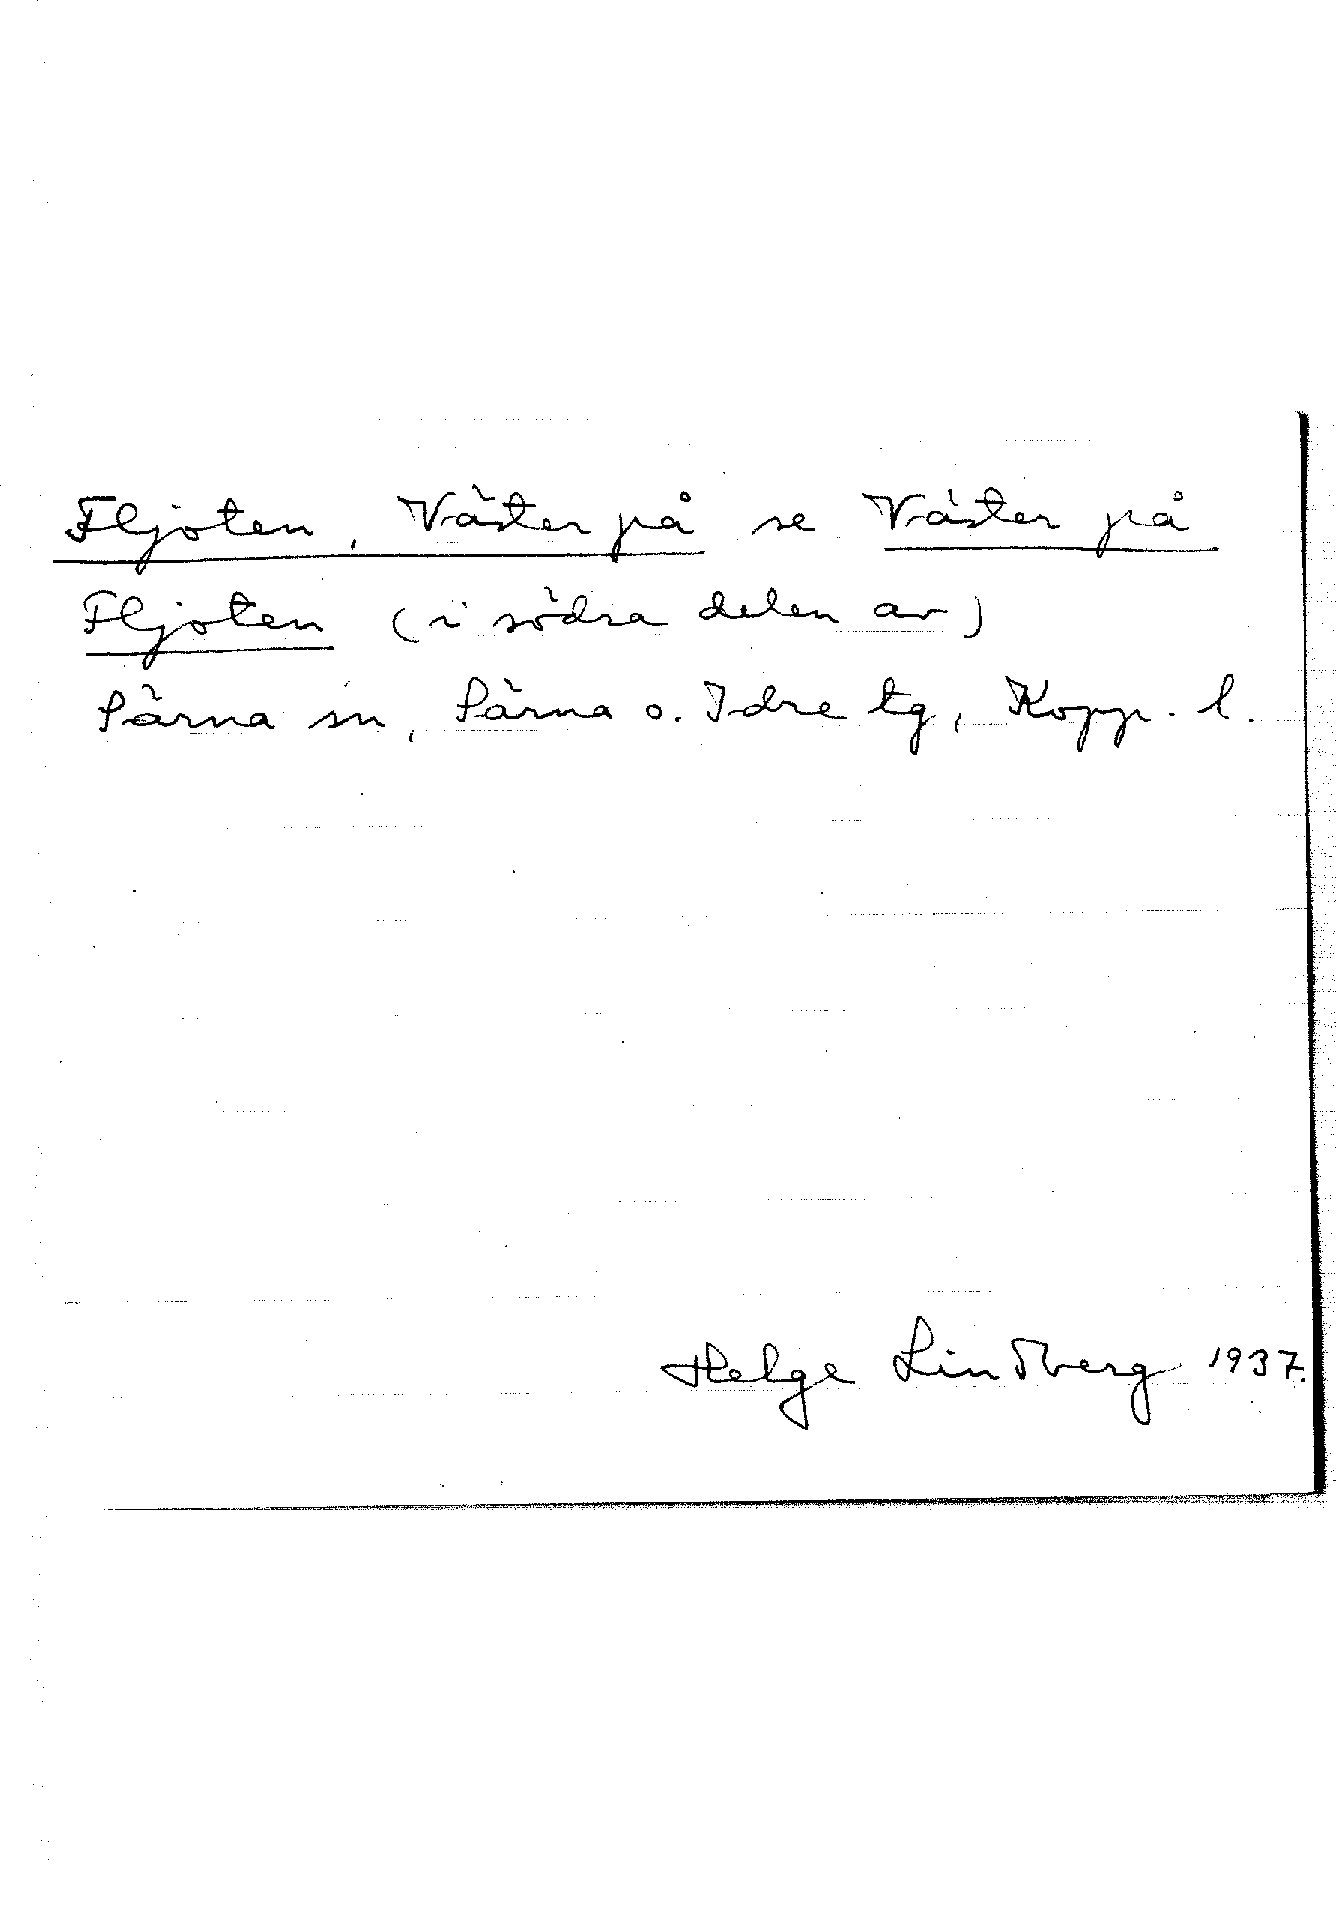 Fljoten, Väster på se Väster på
Fljoten (i södra delen av)
Särna sn, Särna o. Idre tg, Kopp. l.
Helge Lindberg 1937.